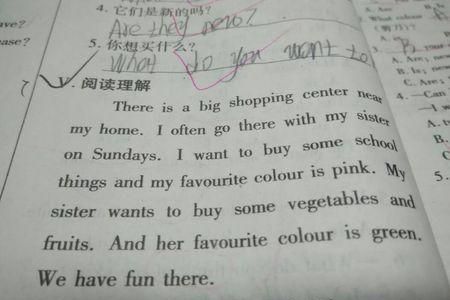 4. 它们是新的吗?
Are they new?
5. 你想买什么?
What do you want to
V. 阅读理解
There is a big shopping center near
my home. I often go there with my sister
on Sundays. I want to buy some school
things and my favourite colour is pink. My
sister wants to buy some vegetables and
fruits. And her favourite colour is green.
We have fun there.
ave?
ease?
A. Are
What colour
3.
your
A. Are
B. Is
C. Are
4. —Can
—I w
A. t
B.
C.
5.